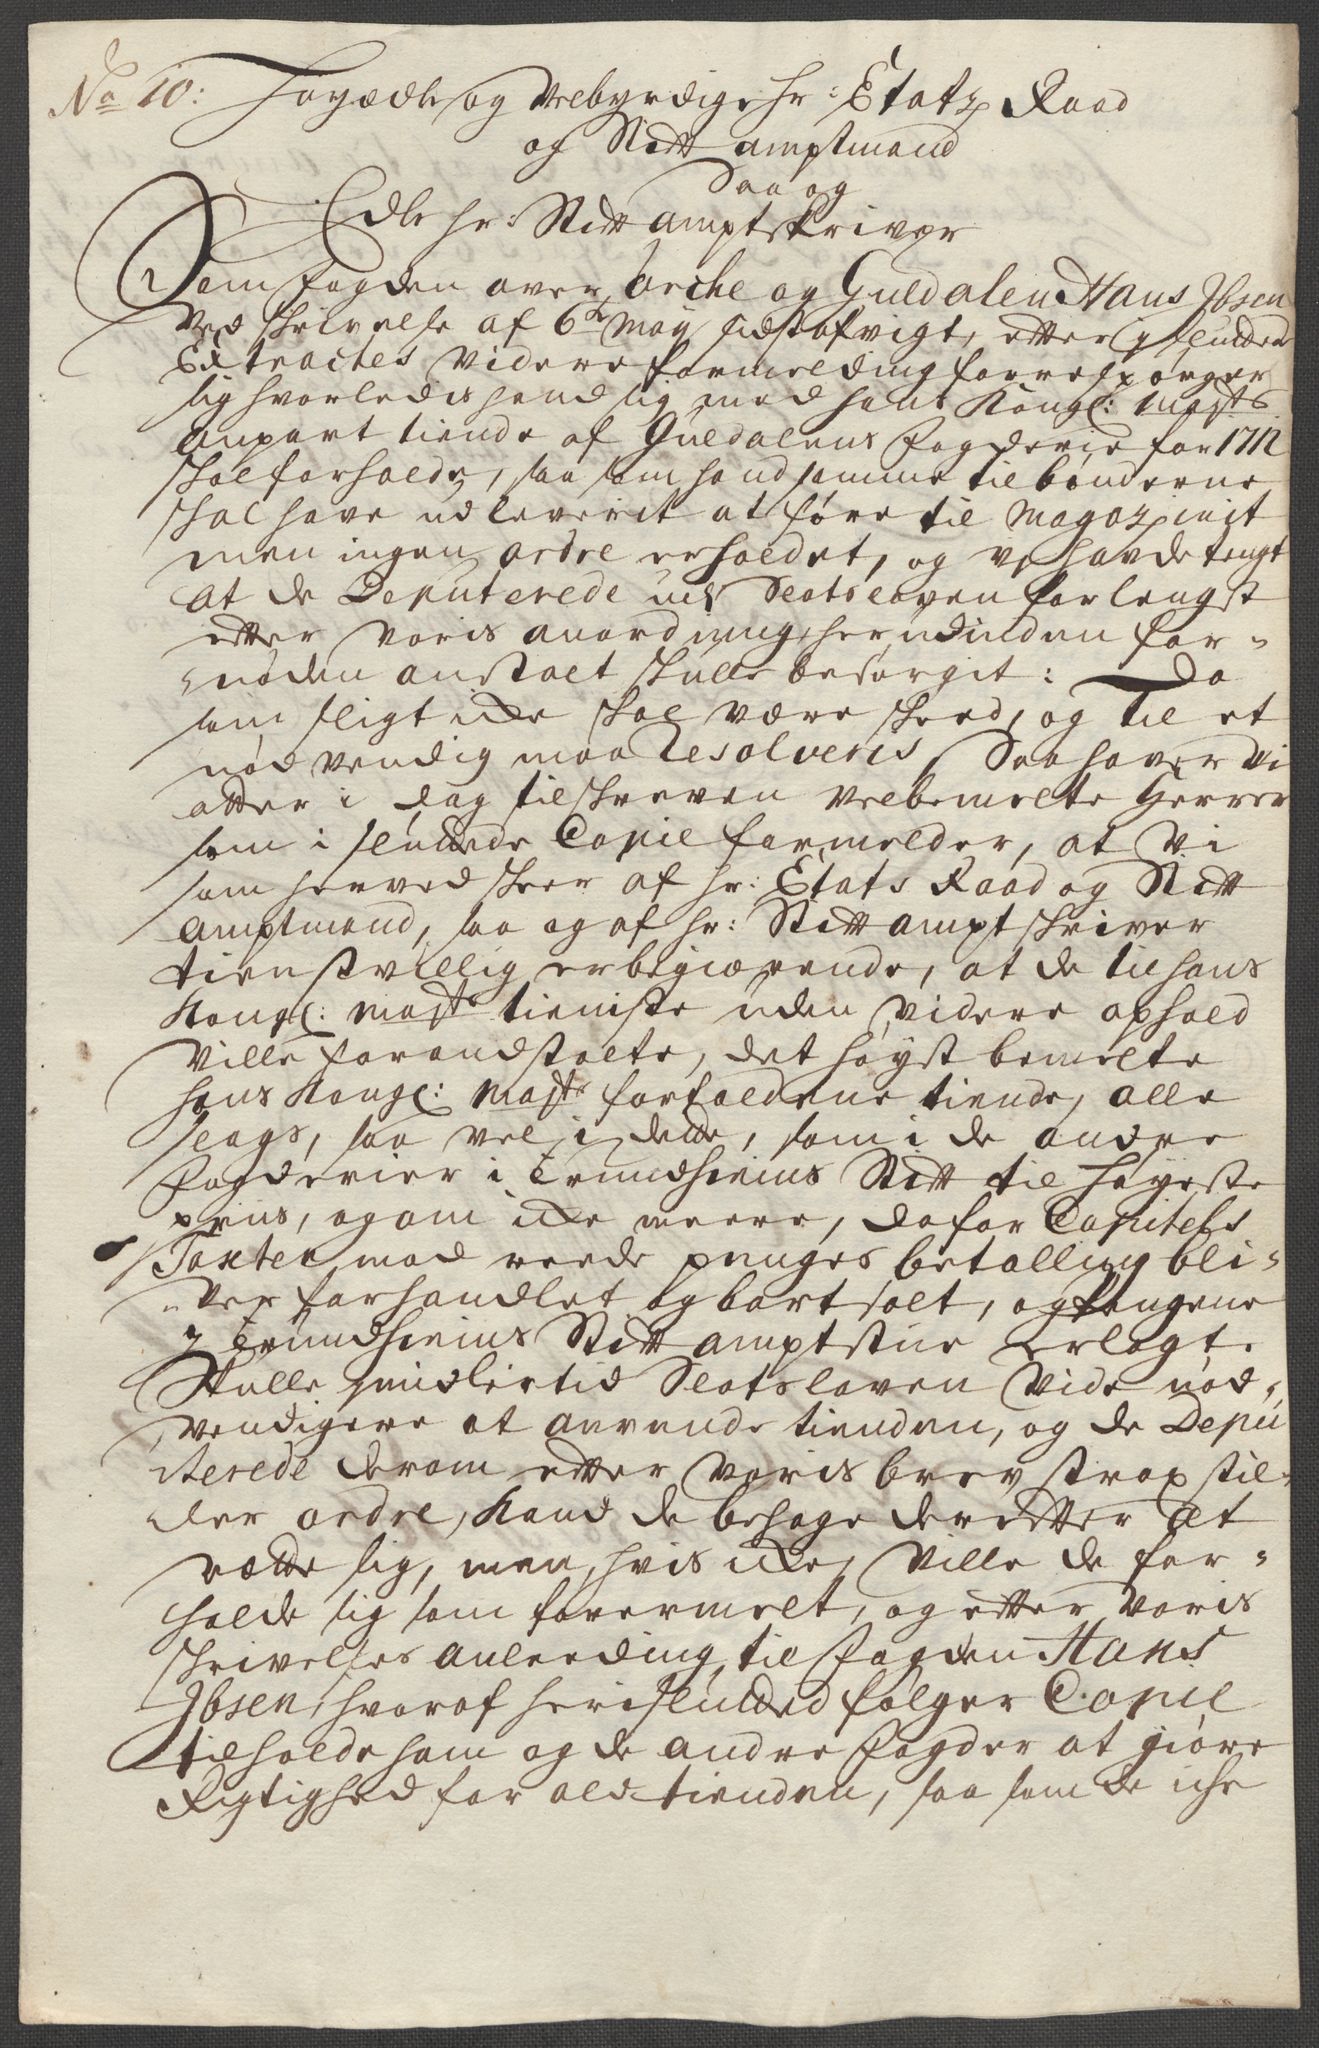 No 10: Høyædle og Velbyrdige hr: Etatz Raad
og Stift amptmand
Saa og
Edle hr: Stift amptskriver
Som fogden over Orche og Guldalen Hans Ibsen
Ved skrivelse af 6te May sidst afvigt, efter jsluttede
Extractes videre formelding forrespørger
sig hvorledis hand sig med hans Kongl: Mayts
anpart tiende af Guldalens fogderie for 1712
skal forholde, saa som hand samme til bønderne
skal have udleverit at føre til Magazinit
men ingen ordre erholdet, og vi hafde tengt
at de Deputerede ud Slotsloven forlengst
efter voris anordning her udinden for-
nøden anstalt skulle besørgit: Da
som sligt icke skal være skeed, og Til et
nødvendig maa Resolveris, Saa haver Vi
atter i dag tilskreven velbemelte Herrer
som i sluttede Copie formelder, at Vi
som herved skeer af hr: Etats Raad og Stift
amptmand, saa og af hr: Stift amptskriver
tienstvillig erbegiærende, at de til hans
Kongl: Mayts tieniste uden videre ophold
Ville foranstalte, det høyst bemelte
hans Kongl: Mayts forfaldene tiende, alle
slags, saa vel i dette, som i de andre
fogderier i Trundhiems Stift til høyeste
priis, og om icke meere, da for Capitels
Taxten mod reede penges betalling bli-
ver forhandlet og bortsolt, og pengene
j Trundhiems Stift amptstue erlagt.
Skulle jmidlertid Slotsloven vide nød-
vendigere at anvende tienden, og de Depu
terede derom efter voris brev strax stil-
ler ordre, Kand de behage derefter at
rætte sig, men, hvis icke, Ville de for-
holde sig som forermelt, og efter voris
skrivelses anleeding til fogden Hans
Ibsen, hvoraf herislutted følger Copie
tilholde ham og de andre fogder at giøre
Rigtighed for ald tienden, saa som de icke